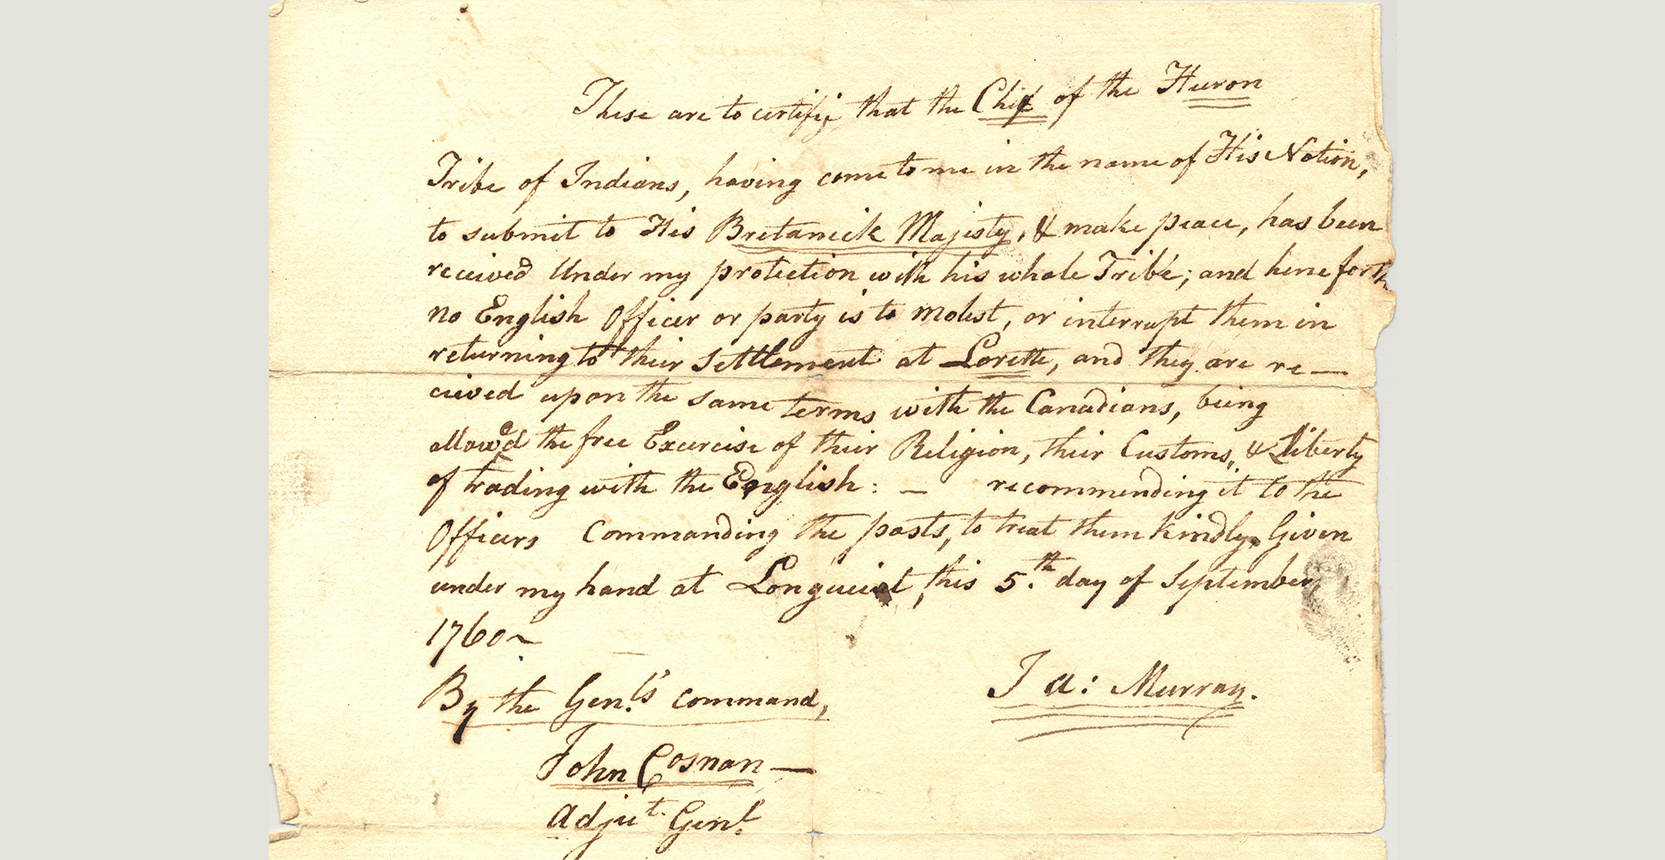 These are to certifie that the Chief of the Huron
Tribe of Indians, having come to me in the name of His Nation,
to submit to His Bretanick Majesty, & make peace, has been
received Under my protection with his whole Tribe; and hence forth
no English Officer or party is to molest, or interrupt them in
returning to their Settlement at Lorette, and they are re—
ceived upon the same terms with the Canadians, being
allowed the free Exercise of their Religion, their Customs, & Liberty
of trading with the English: — recommending it to the
Officers Commanding the posts, to treat them kindly. Given
under my hand at Longueil, this 5.th day of September
1760~
By the Genl's command, Ja: Murray.
John Cosnan —
Adjut. Genl.